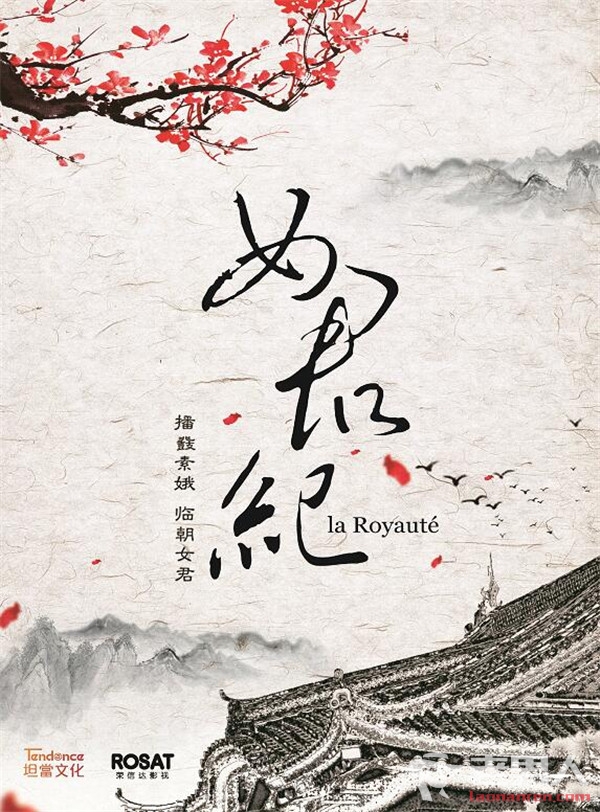 女君紀
播鼗素娥 临朝女君
la Royauté
Tend@nce
坦當文化
ROSAT
荣信达影视